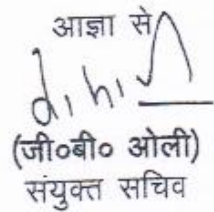 आज्ञा से
(जी०बी० ओली)
संयुक्त सचिव